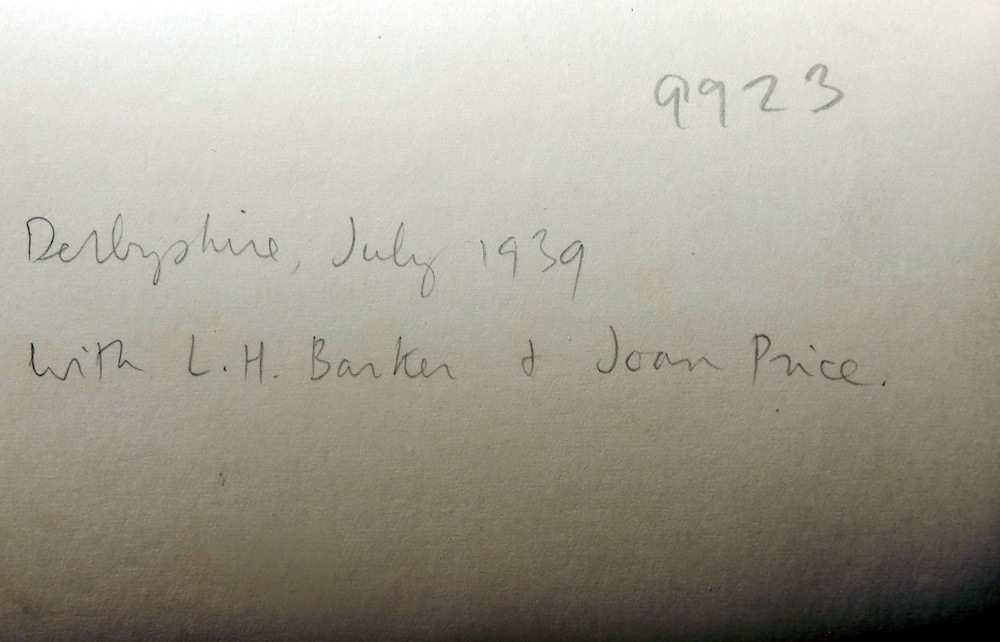 9923
Derbyshire, July 1939
with L.H. Barker & Joan Price.